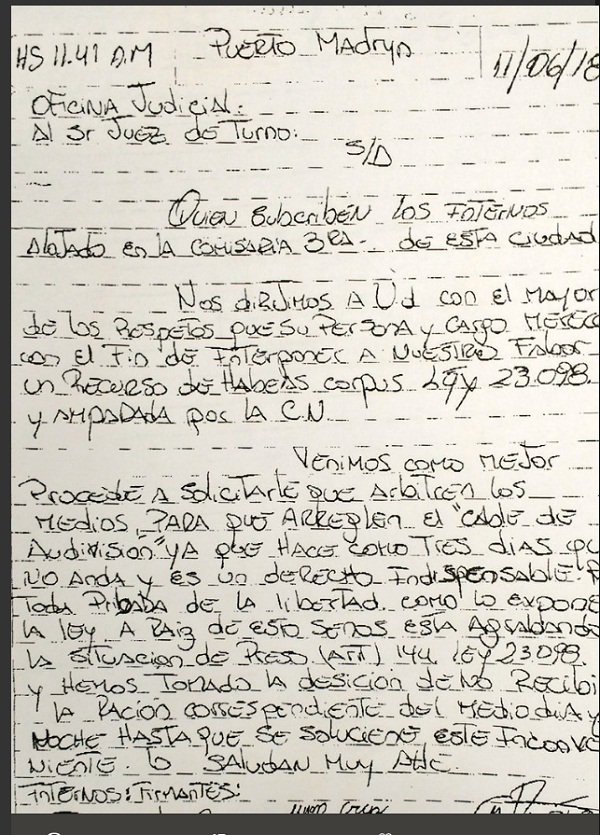 HS 11.41 A.M PUERTO MADRYN 11/06/18
OFICINA JUDICIAL:
Al Sr JUEZ de TURNO:
S/D
QUIEN SUBSCRIBEN LOS INTERNOS
AlOJADO en LA COMISARIA 3RA- de ESTA CIUDAD
NOS dIRIJIMOS A Ud con el MAYOR
de los RESPETOS QUE SU PERSONA y CARGO MEREC
con el Fin de INTERPONER A NUESTRO FABOR
un RECURSO de HABEAS CORPUS LEY 23.098.
y AMPARADA por LA C.N
VENIMOS COMO MEJOR
PROCEDE A SOLICITARLE QUE ARBITREN los
MEDIOS, PARA QUE ARREGLEN el "CABLE DE
AUDIVISION" YA QUE HACE COMO TRES DIAS QU
NO ANDA y ES un DERECHO INDISPENSABLE. P
TODA PRIBADA DE LA libERTAd. COMO lo EXPONE
la lEY A RAIZ de ESTO SENOS ESTA AGRABANDO
LA SITUACION DE PRESO (ART) LEY 23098.
y HEMOS TOMADO LA DESICION DE NO RECIBI
LA RACION CORRESPENDIENTE DEL MEDIODIA y
NOCHE HASTA QUE SE SOLUCIONE ESTE INCONVE
NIENTE. lo SALUDAN MUY ATTE
INTERNOS: FIRMANTES: